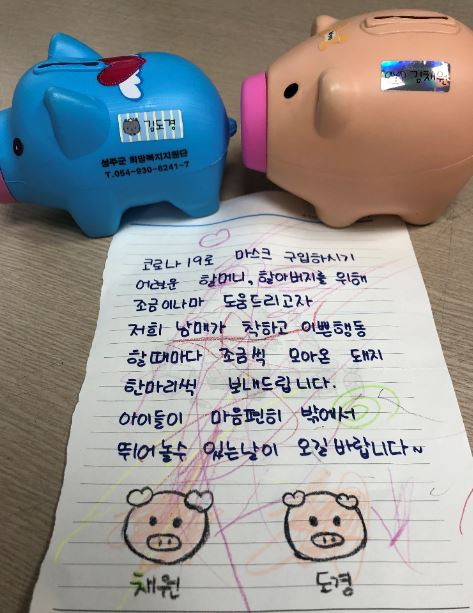 김도경
성주군 희망복지지원단
T.054-930-6241~7
김채원
코로나19로 마스크 구입하시기
어려운 할머니, 할아버지를 위해
조금이나마 도움드리고자
저희 남매가 착하고 이쁜행동
할때마다 조금씩 모아온 돼지
한마리씩 보내드립니다.
아이들이 마음편히 밖에서
뛰어놀수 있는날이 오길 바랍니다~
채원
도경